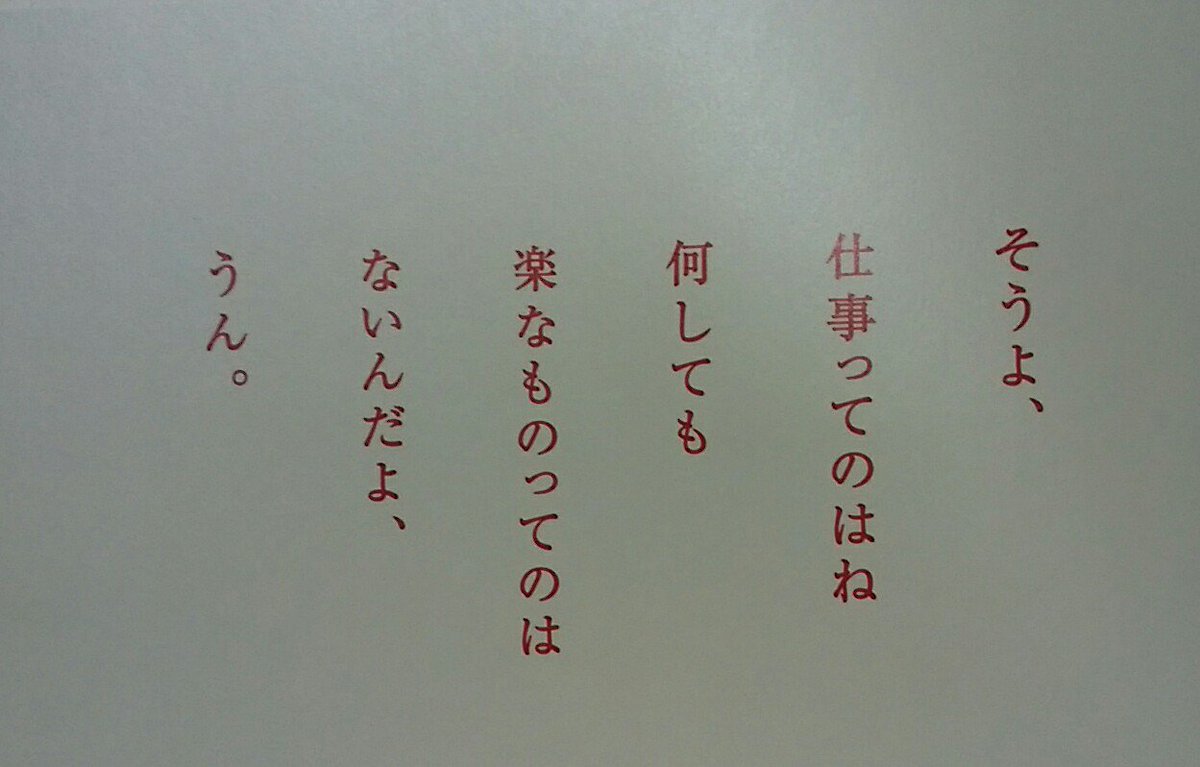 そうよ、
仕事ってのはね
何しても
楽なものってのは
ないんだよ、
うん。